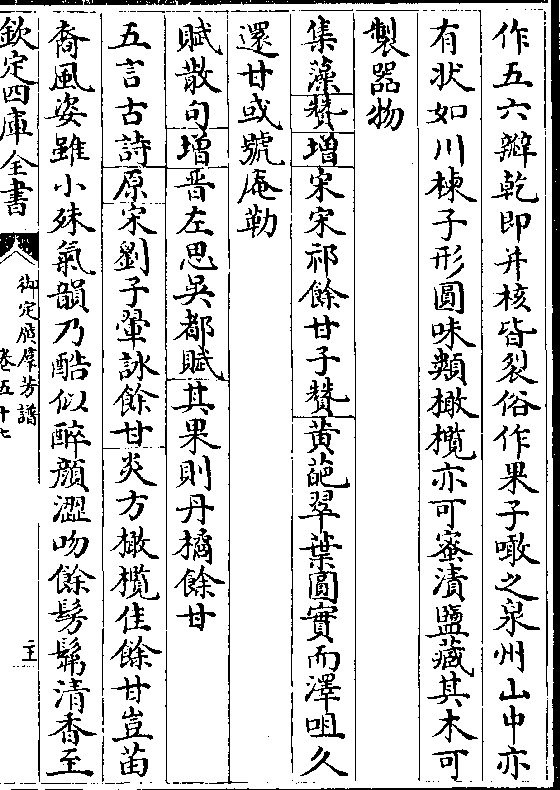 作五六瓣乾即并核皆裂俗作果子噉之泉州山中亦
有狀如川楝子形圓味類橄欖亦可蜜漬鹽藏其木可
製器物
集藻贊增宋宋祁餘甘子贊黃葩翠葉圓實而澤咀久
還甘或號庵勒
賦散句增晉左思吳都賦其果則丹橘餘甘
五言古詩原宋劉子翬詠餘甘炎方橄欖佳餘甘豈苗
裔風姿雖小殊氣韻乃酷似醉顏澀吻餘髣髴清香至
欽定四庫全書
御定廣羣芳譜
卷五十七